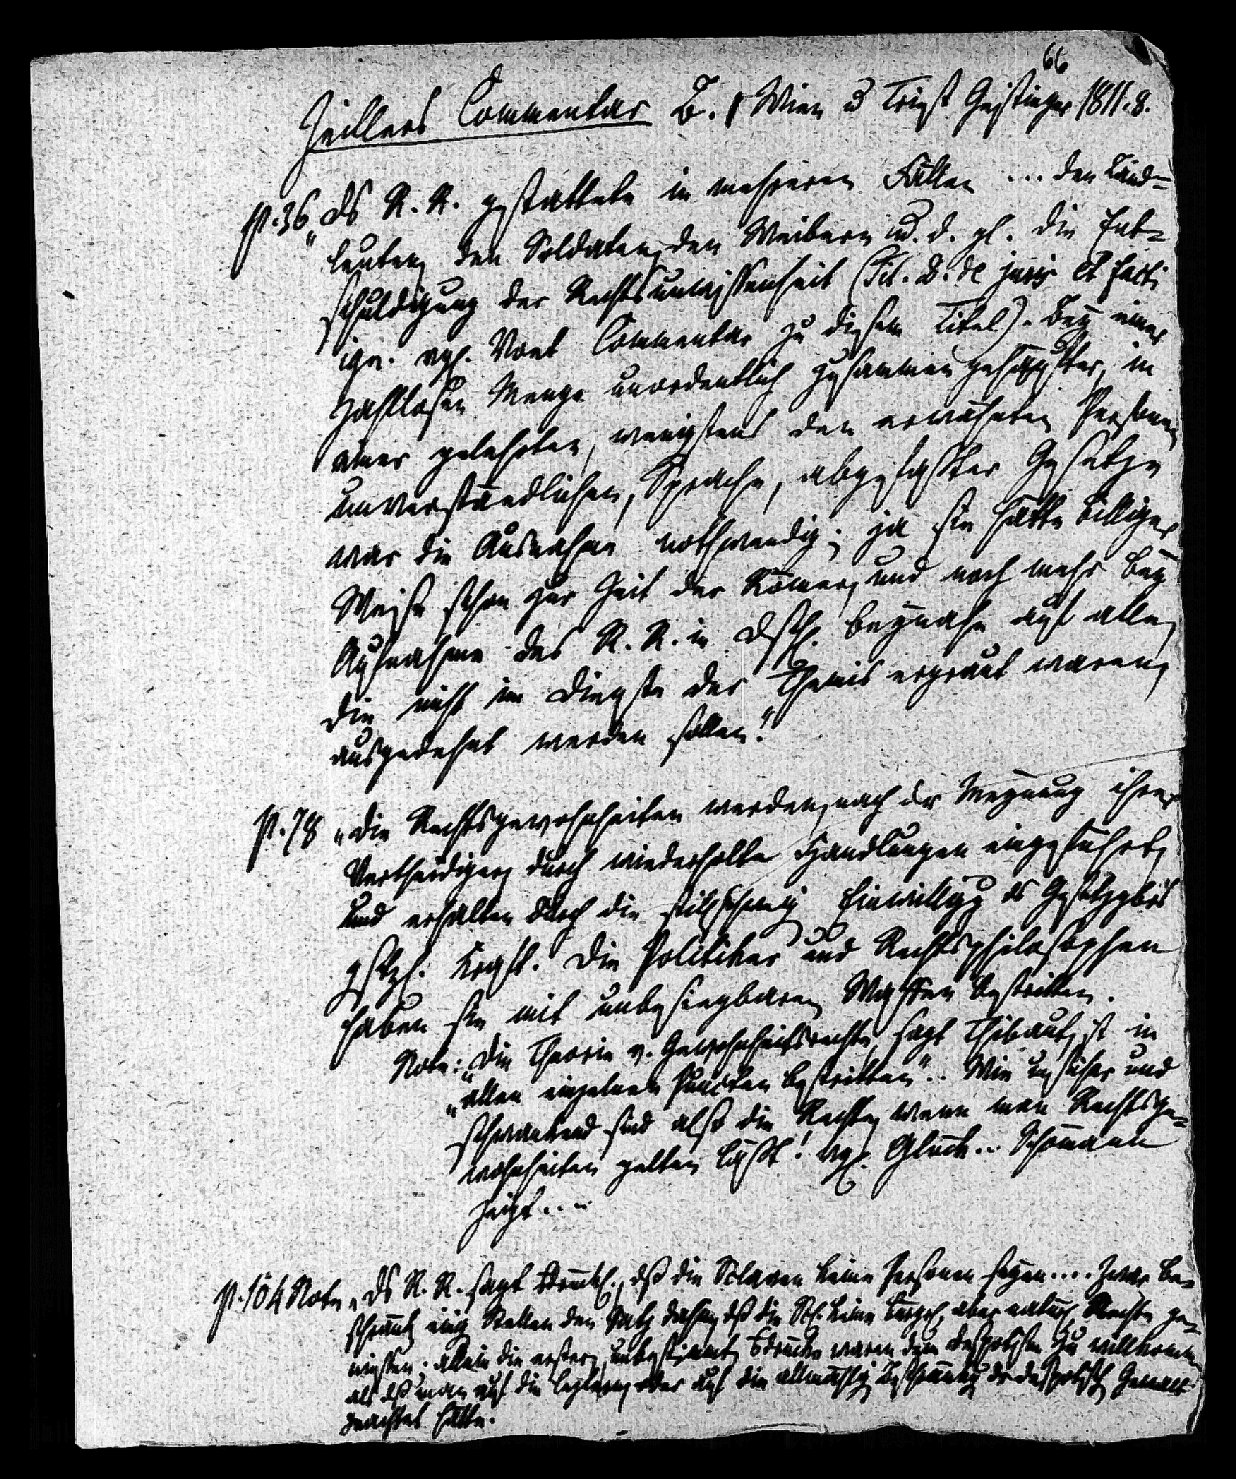 66
Zeillers Commentar B. 1 Wien u Triest Geistinger 1811. 8.
p. 36 „Ds R. R. gestattete in mehreren Fällen ... den Land-
leuten, den Soldaten, den Weibern u. d. gl. die Ent-
schuldigung der Rechtsunwissenheit (Tit. D. de juris et facti
igr. vgl. Voet Commentar zu diesem Titel). Bey einer
zahllosen Menge unordentlich zusammengehäufter, in
einer gelehrten, wenigstens den erwähnten Personen
unverständlichen, Sprache, abgefaßter Gesetze
war die Ausnahme nothwendig; ja sie hätte billiger
Weise schon zur Zeit der Römer, und noch mehr bey
Aufnahme des R. R. in Dschl. beynahe auf alle,
die nicht im Dienste der Themis ergraut waren,
ausgedehnt werden sollen!"
p. 78 „Die Rechtsgewohnheiten werden, nach der Meynung ihrer
Vertheidiger, durch wiederholte Handlungen eingeführt,
und erhalten durch die stillschweig Einwilligg ds Gesetzgebers
gstzl. Kraft. Die Politiker und Rechtsphilosophen
haben sie mit unbesiegbaren Waffen bestritten.
Note: „Die Theorie v. Gewohnheitsrechte, sagt Thibaut, ist in
„allen einzelnen Puncten bestritten". Wie unsicher und
schwankend sind also die Rechte, wenn man Rechtsge-
wohnheiten gelten läßt! vgl. Glück .. Schömann
zeigt ...
p. 104 Note „Ds R. R. sagt ausdrückl., dß die Sclaven keine Personen seyen .... Zwar be-
schränkt einig Stellen den Satz dahin, dß die Scl. keine bürgerl. aber natürl. Rechte ge-
niessen. Allein die ersteren, unbestimmt, Ausdrücke waren dem Despotism zu willkommen,
als dß man auf die letztern, oder auf die allmählig Beschränkg der despotisch Gewalt
geachtet hätte.